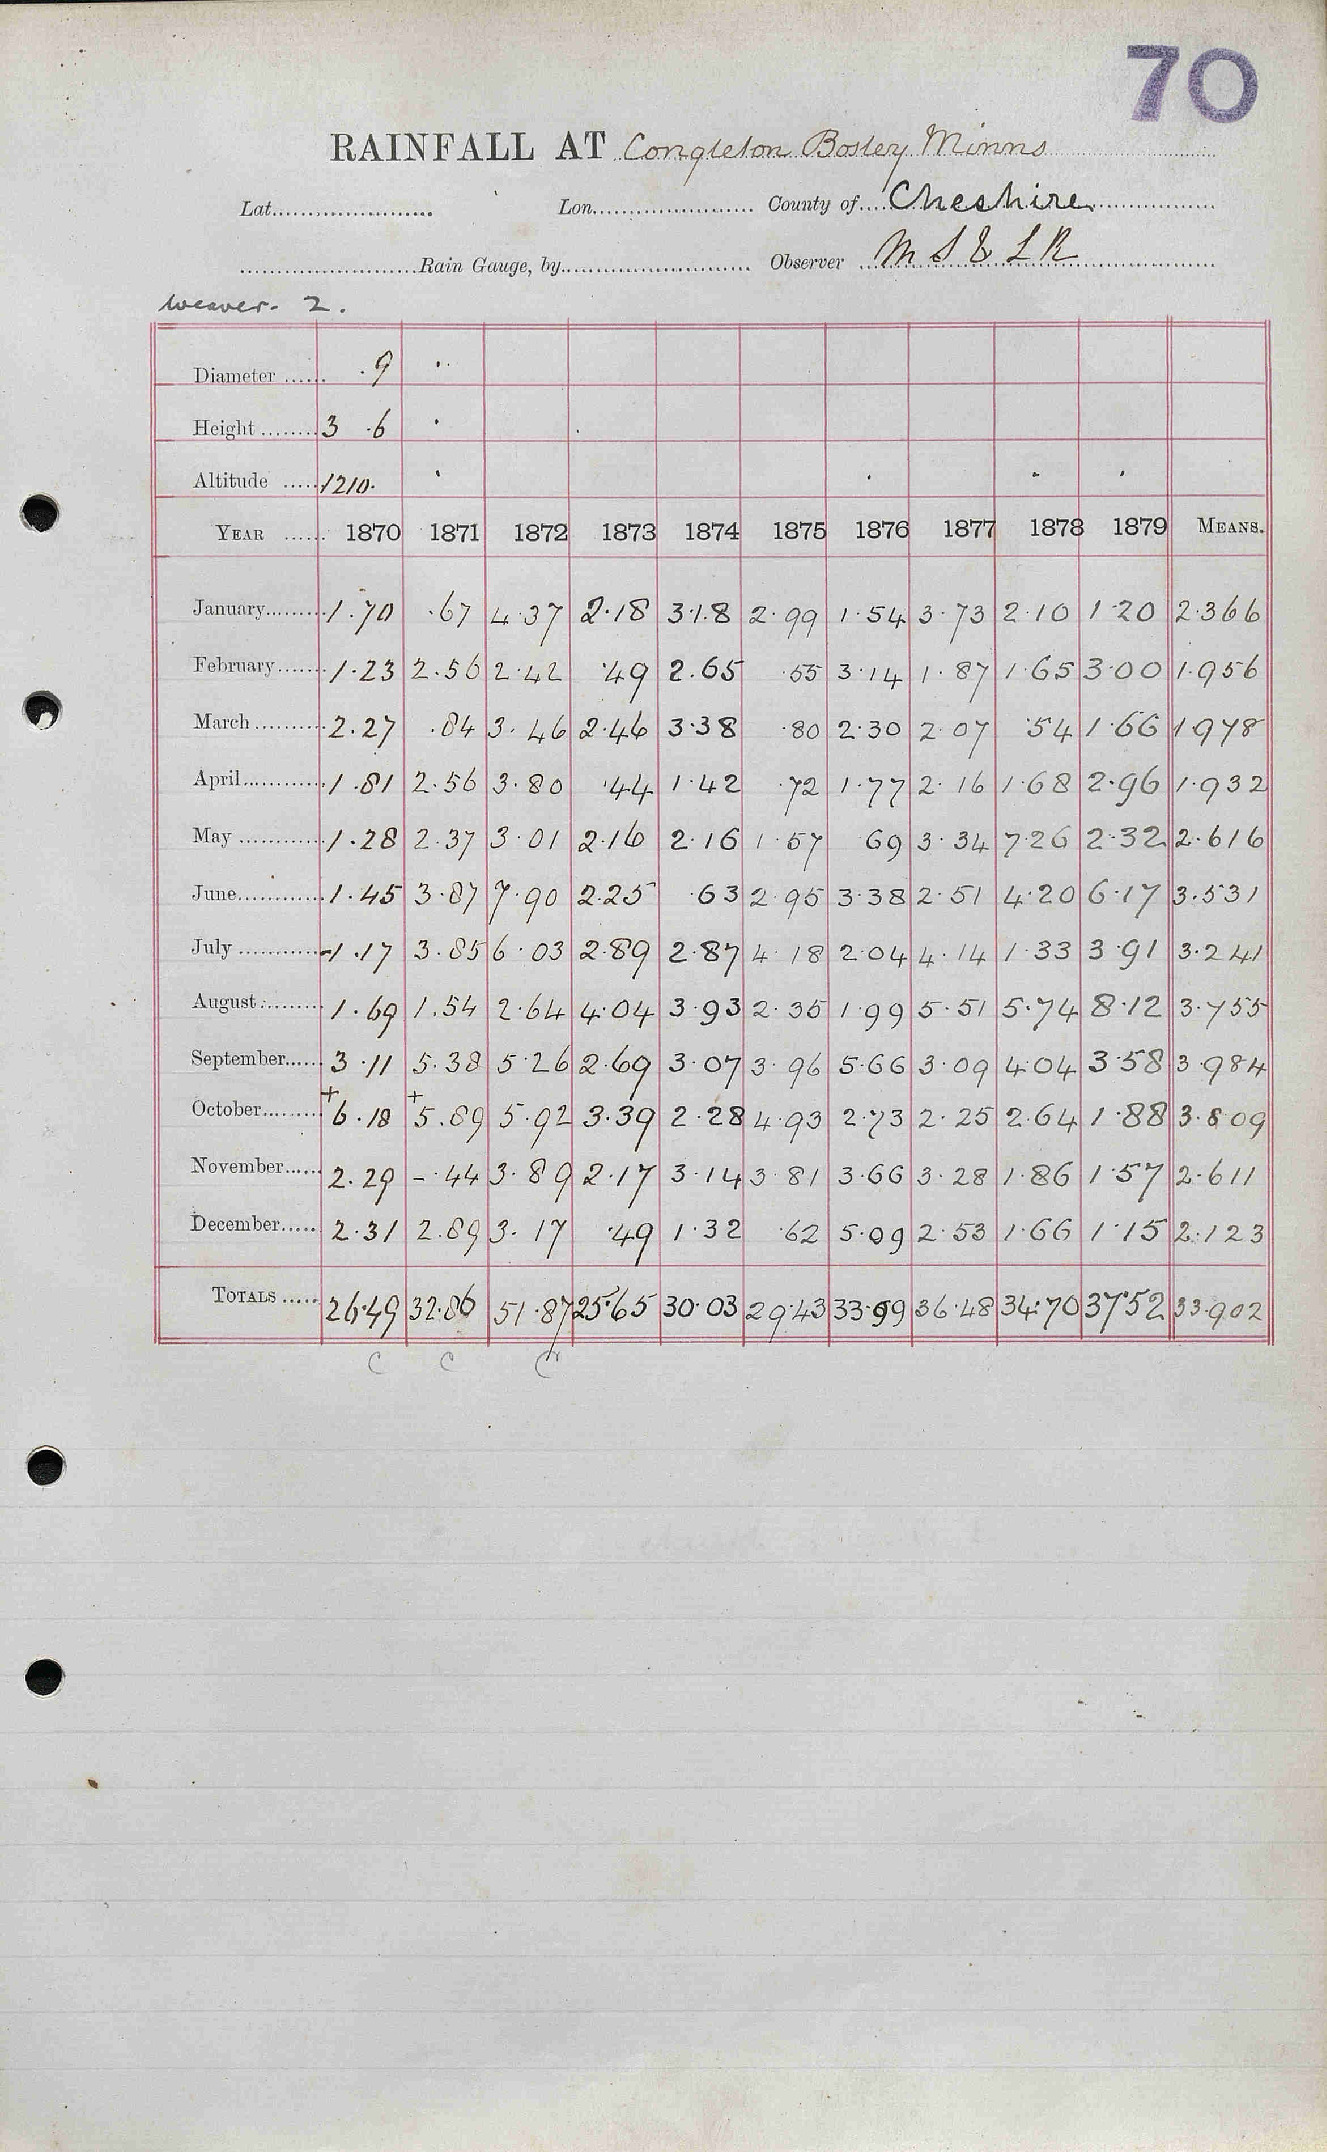 70
RAINFALL AT Congleton Bosley Minns
Lat. Lon. County of Cheshire.
Rain Gauge, by Observer M S & L R
Weaver. 2.
Diameter ·9 "
Height 3 ·6 "
Altitude 1210· "
YEAR 1870 1871 1872 1873 1874 1875 1876 1877 1878 1879 MEANS.
January 1·70 ·67 4·37 2·18 3·18 2·99 1·54 3·73 2·10 1·20 2·366
February 1·23 2·56 2·42 ·49 2·65 ·55 3·14 1·87 1·65 3·00 1·956
March 2·27 ·84 3·46 2·46 3·38 ·80 2·30 2·07 ·54 1·66 1·978
April 1·81 2·56 3·80 ·44 1·42 ·72 1·77 2·16 1·68 2·96 1·932
May 1·28 2·37 3·01 2·16 2·16 1·57 69 3·34 7·26 2·32 2·616
June 1·45 3·87 7·90 2·25 ·63 2·95 3·38 2·51 4·20 6·17 3·531
July -1·17 3·85 6·03 2·89 2·87 4·18 2·04 4·14 1·33 3·91 3·241
August 1·69 1·54 2·64 4·04 3·93 2·35 1·99 5·51 5·74 8·12 3·755
September 3·11 5·38 5·26 2·69 3·07 3·96 5·66 3·09 4·04 3·58 3·984
October +6·18 +5·89 5·92 3·39 2·28 4·93 2·73 2·25 2·64 1·88 3·809
November 2·29 -·44 3·89 2·17 3·14 3·81 3·66 3·28 1·86 1·57 2·611
December 2·31 2·89 3·17 ·49 1·32 ·62 5·09 2·53 1·66 1·15 2·123
TOTALS 26·49 32·86 51·87 25·65 30·03 29·43 33·99 36·48 34·70 37·52 33·902
C C C